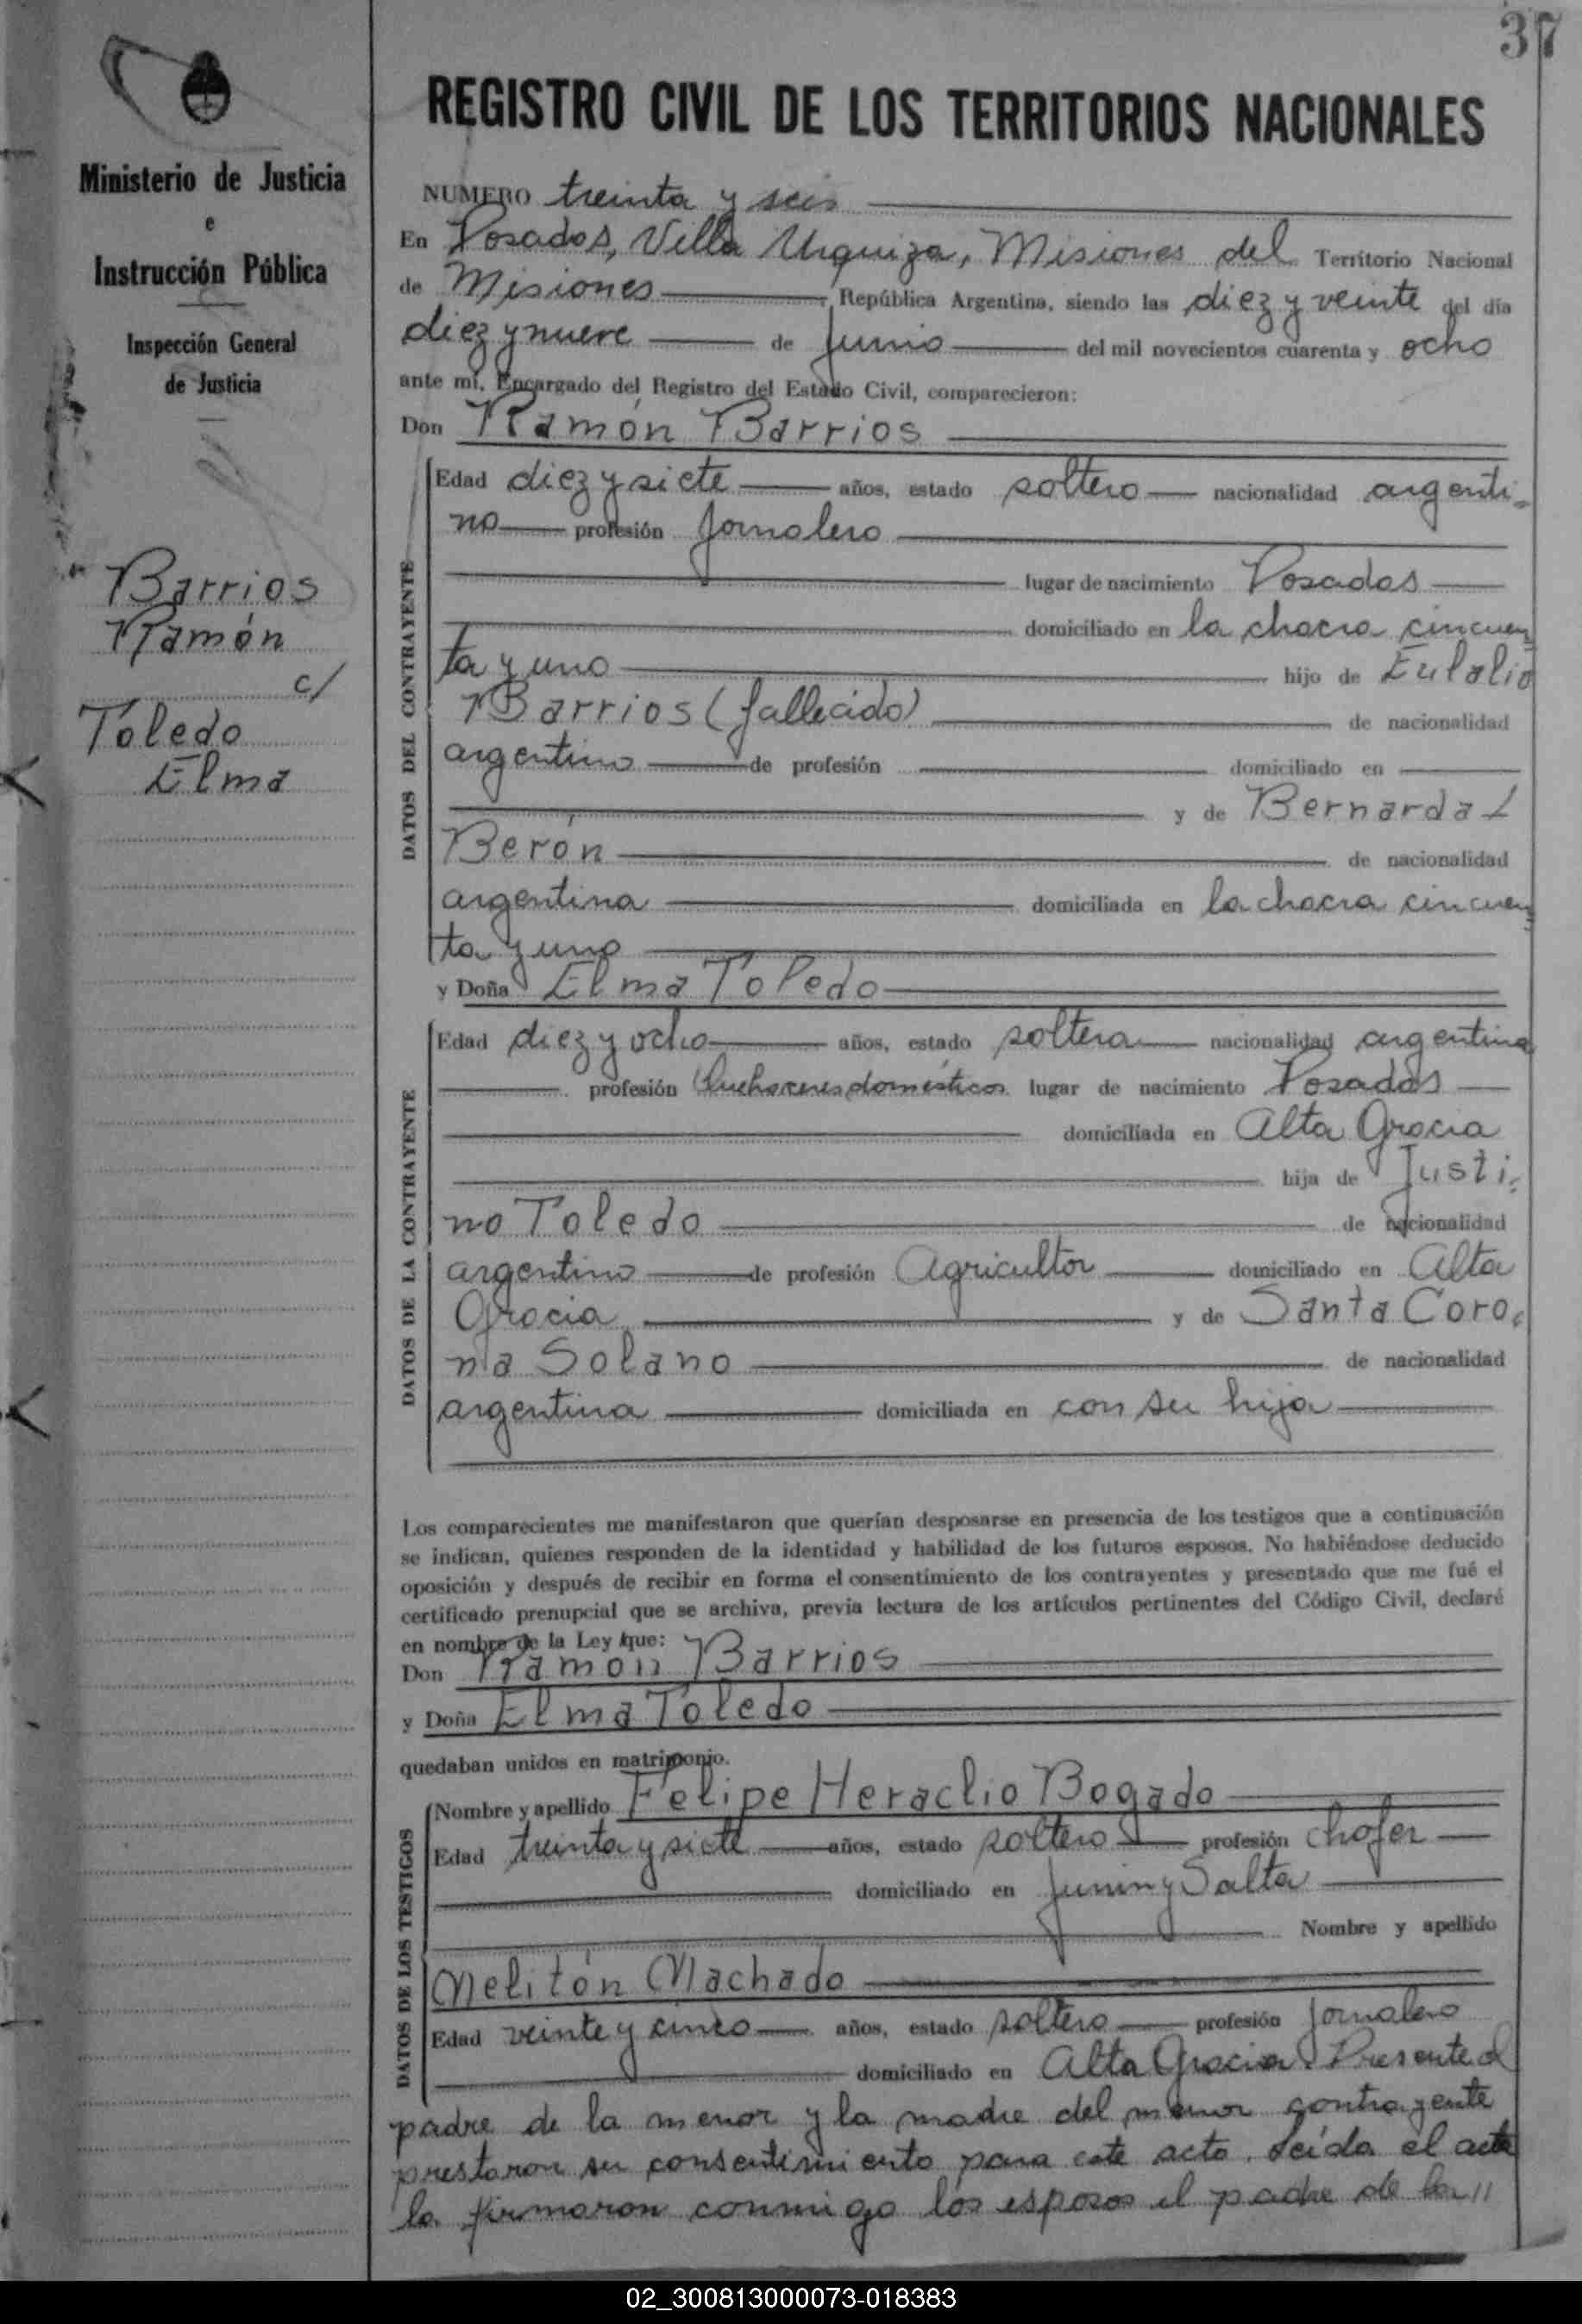 37
Ministerio de Justicia
e
Instrucción Pública
Inspección General
de Justicia
Barrios
Ramón
c/
Toledo
Elma
REGISTRO CIVIL DE LOS TERRITORIOS NACIONALES
NUMERO treinta y seis
En Posadas, Villa Urquiza, Misiones del Territorio Nacional
de Misiones, República Argentina, siendo las diez y veinte del día
diez y nueve de Junio del mil novecientos cuarenta y ocho
ante mí, Encargado del Registro del Estado Civil, comparecieron:
Don Ramón Barrios
DATOS DEL CONTRAYENTE
Edad diez y siete años, estado soltero nacionalidad argenti-
no profesión Jornalero
lugar de nacimiento Posadas
domiciliado en la chacra cincuen
ta y uno hijo de Eulalio
Barrios (fallecido) de nacionalidad
argentino de profesión domiciliado en
y de Bernarda L
Berón de nacionalidad
argentina domiciliada en la chacra cincuen
ta y uno
y Doña Elma Toledo
DATOS DE LA CONTRAYENTE
Edad diez y ocho años, estado soltera nacionalidad argentina
profesión Quehaceres domésticos lugar de nacimiento Posadas
domiciliada en Alta Gracia
hija de Justi-
no Toledo de nacionalidad
argentino de profesión Agricultor domiciliado en Alta
Gracia y de Santa Coro-
na Solano de nacionalidad
argentina domiciliada en con su hija
Los comparecientes me manifestaron que querían desposarse en presencia de los testigos que a continuación
se indican, quienes responden de la identidad y habilidad de los futuros esposos. No habiéndose deducido
oposición y después de recibir en forma el consentimiento de los contrayentes y presentado que me fué el
certificado prenupcial que se archiva, previa lectura de los artículos pertinentes del Código Civil, declaré
en nombre de la Ley que:
Don Ramon Barrios
y Doña Elma Toledo
quedaban unidos en matrimonio.
DATOS DE LOS TESTIGOS
Nombre y apellido Felipe Heraclio Bogado
Edad treinta y siete años, estado soltero profesión chofer
domiciliado en Junin y Salta
Nombre y apellido
Melitón Machado
Edad veinte y cinco años, estado soltero profesión Jornalero
domiciliado en Alta Gracia. Presente el
padre de la menor y la madre del menor contrayente
prestaron su consentimiento para este acto. Leída el acta
la firmaron conmigo los esposos el padre de la //
02_300813000073-018383